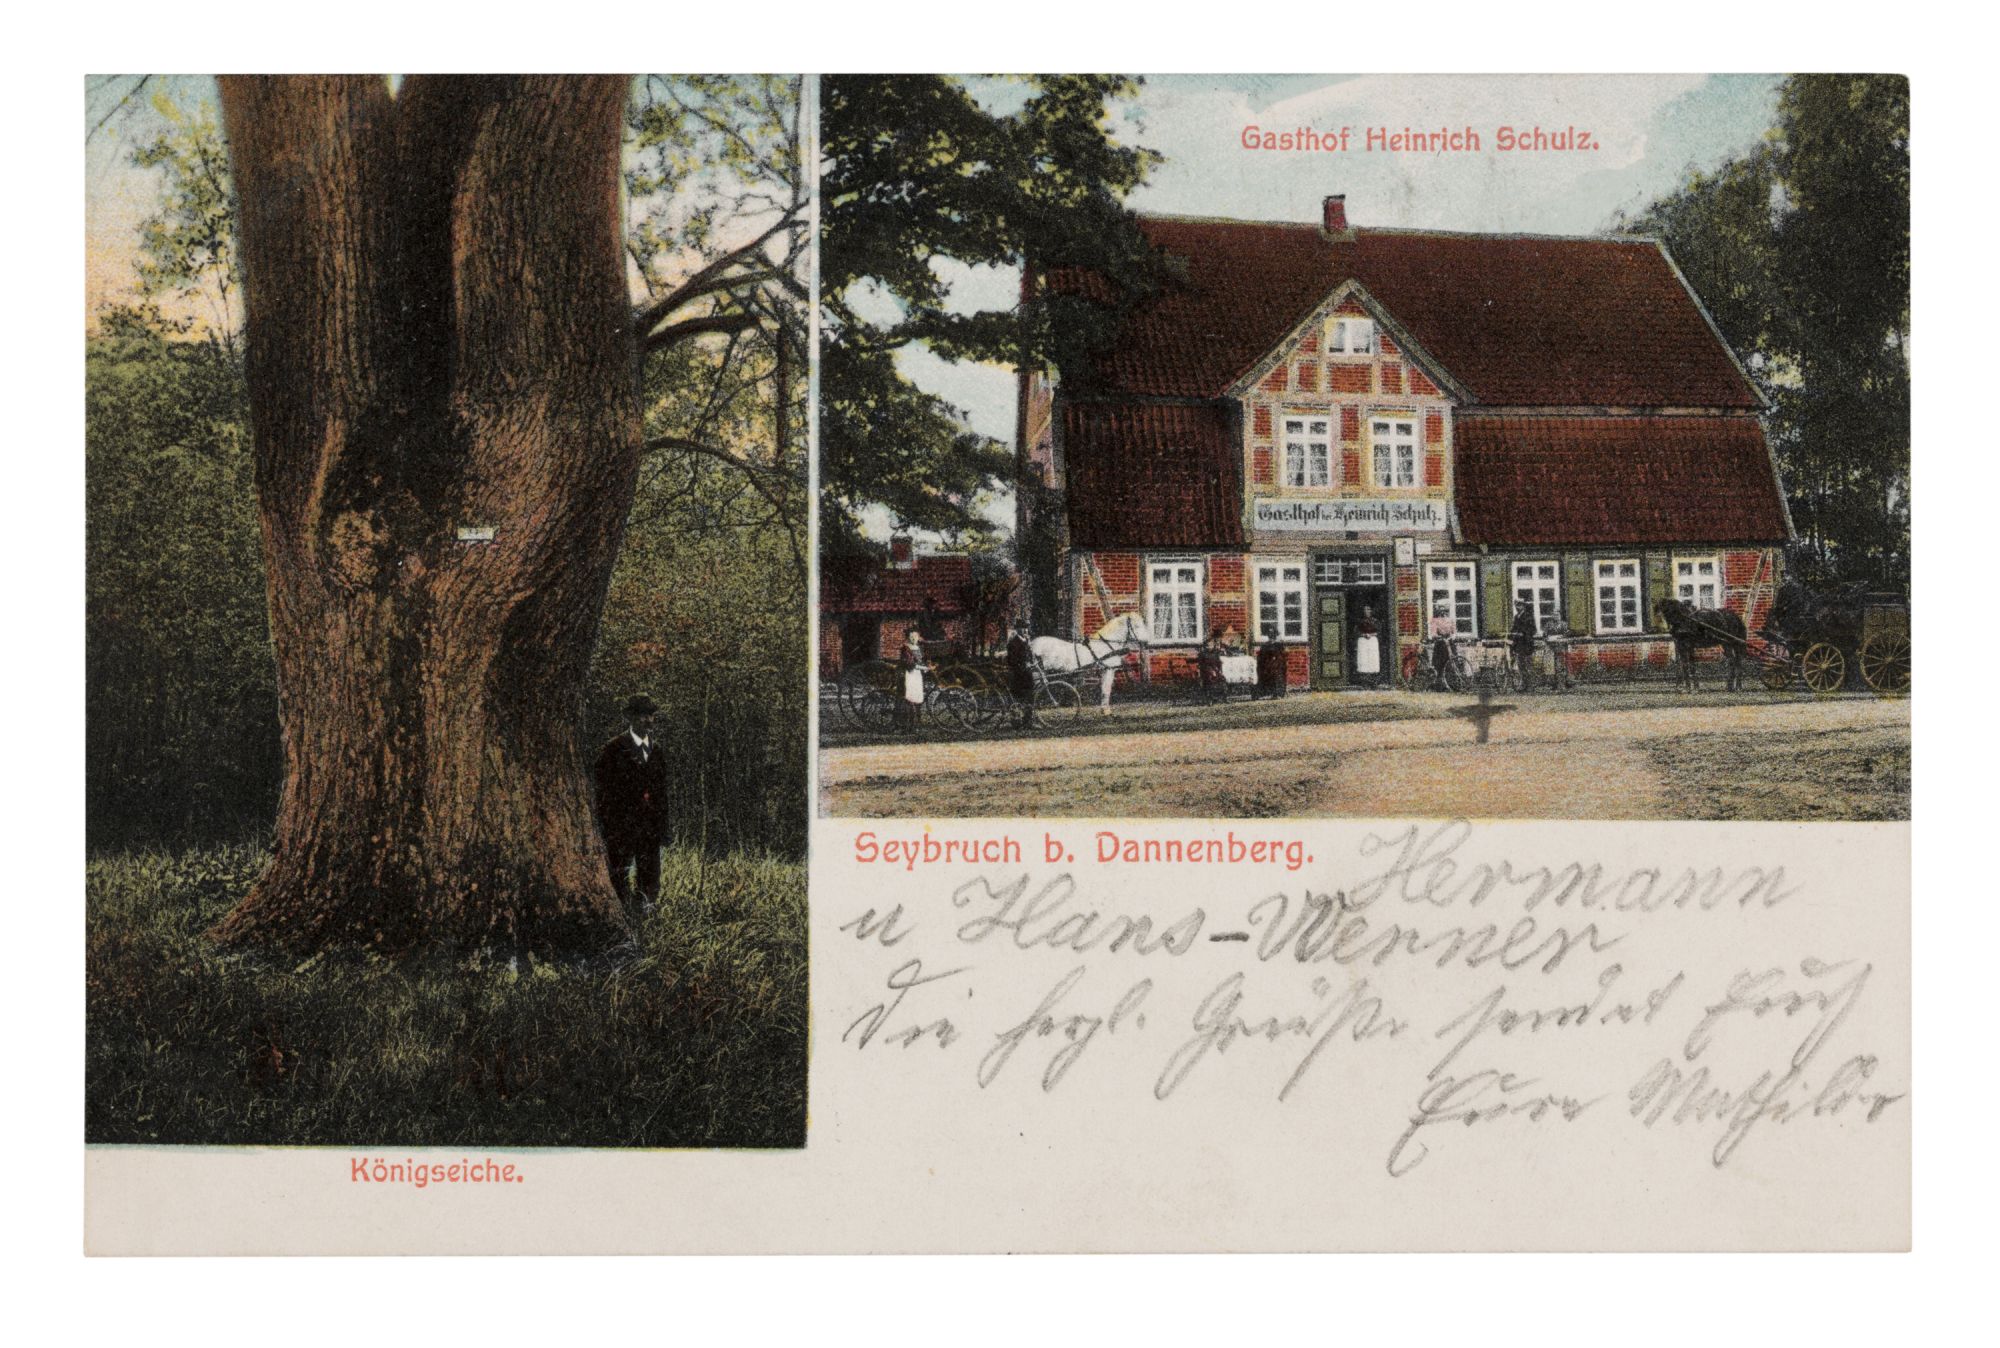 Gasthof Heinrich Schulz.
Gasthof von Heinrich Schulz.
Königseiche.
Seybruch b. Dannenberg.
Hermann
u Hans-Werner
die herzl. Grüße sendet Euch
Eure Mathilde